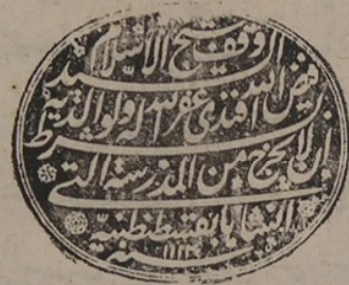 وقف شيخ الاسلام السيد
فيض الله افندى غفر الله له ولوالديه بشرط
ان لايخرج من المدرسة التى
انشاها بقسطنطنية
سنة ١١١٣